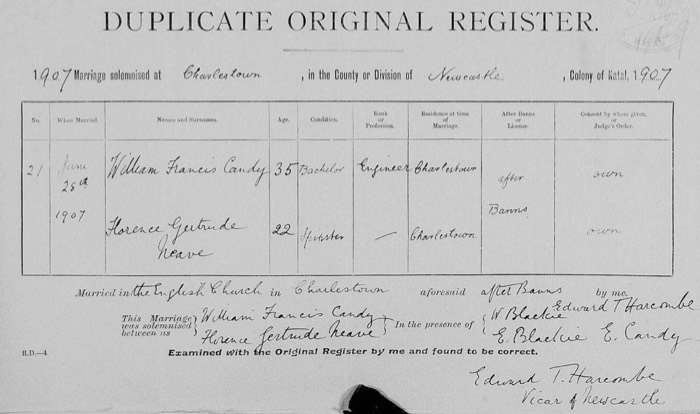 DUPLICATE ORIGINAL REGISTER.
1907 Marriage solemnised at Charlestown, in the County or Division of Newcastle, Colony of Natal, 1907
No. When Married. Names and Surnames. Age. Condition. Rank or Profession. Residence at time of Marriage. After Banns or License. Consent by whom given, or Judge's Order.
21 June 28th 1907 William Francis Candy 35 Bachelor Engineer Charlestown after Banns own
Florence Gertrude Neave 22 Spinster — Charlestown own
Married in the English Church in Charlestown aforesaid after Banns by me.
Edward T. Harcombe
This Marriage was solemnised between us William Francis Candy Florence Gertrude Neave In the presence of W Blackie E. Blackie E. Candy
R.D.—4. Examined with the Original Register by me and found to be correct.
Edward T. Harcombe
Vicar of Newcastle.